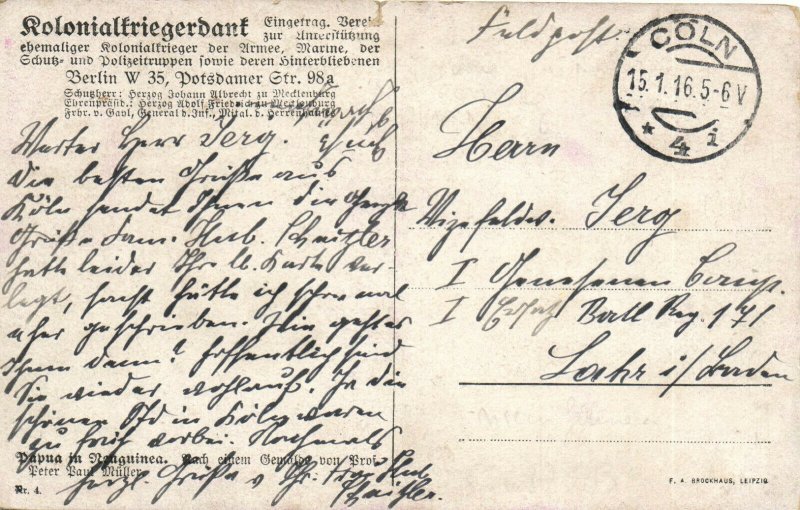 Kolonialkriegerdank Eingetrag. Verein
zur Unterstützung
ehemaliger Kolonialkrieger der Armee, Marine, der
Schutz- und Polizeitruppen sowie deren Hinterbliebenen
Berlin W 35, Potsdamer Str. 98a
Schutzherr: Herzog Johann Albrecht zu Mecklenburg
Ehrenpräsid.: Herzog Adolf Friedrich zu Mecklenburg
Frhr. v. Gayl, General d. Inf., Mitgl. d. Herrenhauses
Werter Herr Jerg.
Die besten Grüße aus
Köln sendet Ihnen die
Grüße Fam. Hub.
hatte leider Ihre lb. Karte ver-
legt, sonst hätte ich schon mal
eher geschrieben. Wie geht es
Ihnen denn? Hoffentlich sind
Sie wieder wohlauf. Ja die
schönen Std in Köln waren
zu früh vorbei. Nochmals
herzl. Grüße v. Ihr. Hub.
Papua in Neuguinea. Nach einem Gemälde von Prof.
Peter Paul Müller
Nr. 4.
Feldpost
CÖLN
15.1.16.5-6V
* 4 i *
Herrn
Vizefeldw. Jerg
I Genesenen Comp.
I Ersatz Batl Reg. 171
Lahr i/Baden
F. A. BROCKHAUS, LEIPZIG